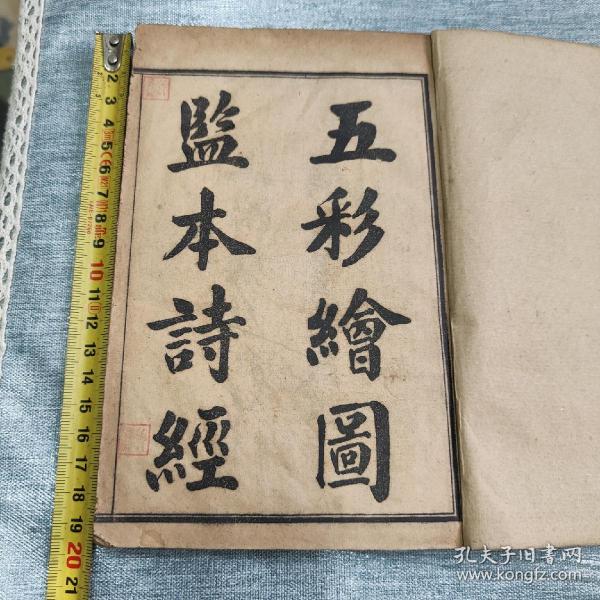 五彩繪圖
監本詩經
2
3
4
5
6
7
8
9
10
11
12
13
14
15
16
17
18
19
20
21
孔夫子旧书网
www.kongfz.com